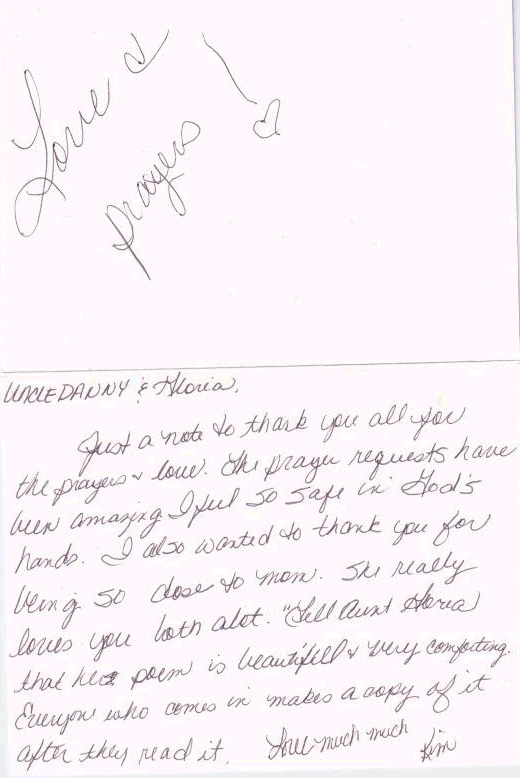 Love &
prayers
UNCLE DANNY & Gloria,
Just a note to thank you all for
the prayers & love. The prayer requests have
been amazing I feel so safe in God's
hands. I also wanted to thank you for
being so close to mom. She really
loves you both alot. "Tell Aunt Gloria
that her poem is beautifull & very comforting.
Everyon who comes in makes a copy of it
after they read it. Love much much
Kim